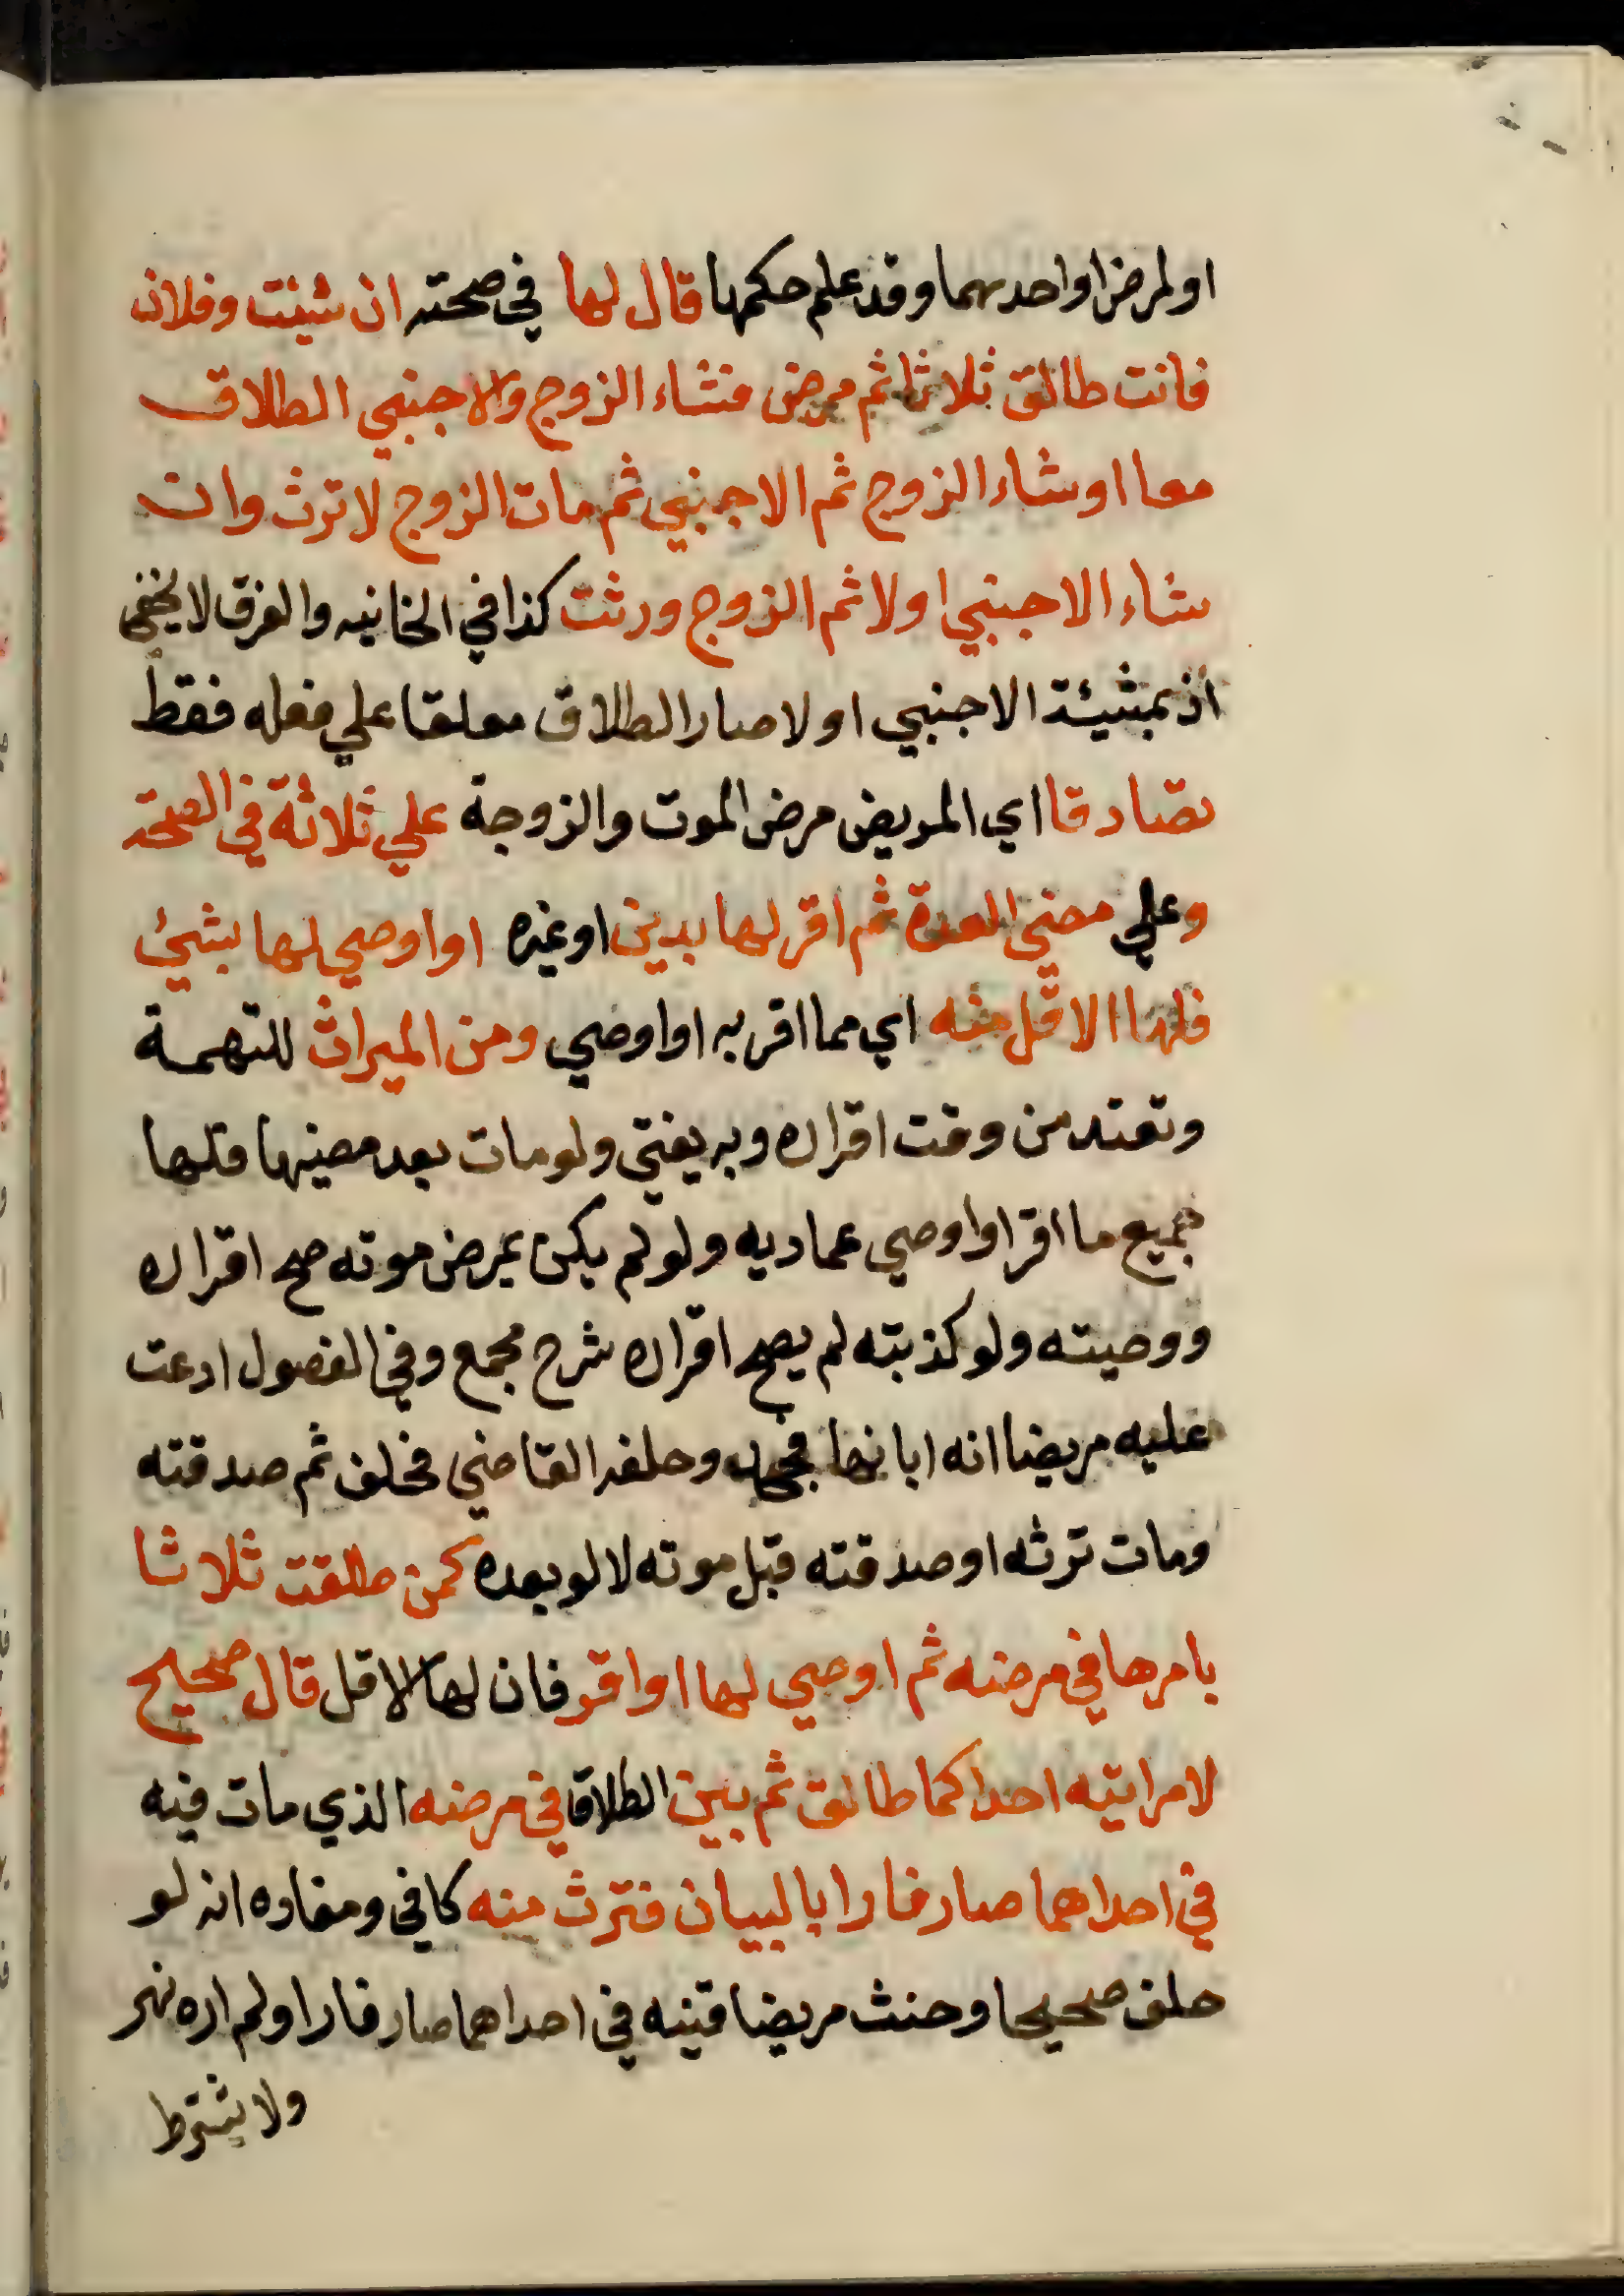 او لمرض او احدهما وقد علم حكمها قال لها في صحته ان شئت وفلان
فانت طالق ثلاثا ثم مرض فشاء الزوج والاجنبي الطلاق
معا او شاء الزوج ثم الاجنبي ثم مات الزوج لا ترث وان
شاء الاجنبي اولا ثم الزوج ورثت كذا في الخانيه والفرق لا يخفى
اذ بمشيئة الاجنبي اولا صار الطلاق معلقا علي فعله فقط
تصادقا اي المريض مرض الموت والزوجة علي ثلاثة في الصحة
وعلي مضي العدة ثم اقر لها بدين او غيره او اوصي لها بشئ
فلها الاقل منه اي مما اقر به او اوصي ومن الميراث للتهمة
وتعتد من وقت اقراره وبه يفتي ولو مات بعد مضيها فلها
جميع ما اقر او اوصي عماديه ولو لم يكن بمرض موته صح اقراره
ووصيته ولو كذبته لم يصح اقراره شرح مجمع وفي الفصول ادعت
عليه مريضا انه ابانها فجحد وحلفه القاضي فحلف ثم صدقته
ومات ترثه او صدقته قبل موته لا لو بعده كمن طلقت ثلاثا
بامرها في مرضه ثم اوصي لها او اقر فان لها الاقل قال صحيح
لامراتيه احداكما طالق ثم بين الطلاق في مرضه الذي مات فيه
في احداهما صار فارا بالبيان فترث منه كافي ومفاده انه لو
حلف صحيحا وحنث مريضا فبينه في احداهما صار فارا ولم اره نهر
ولا يشترط